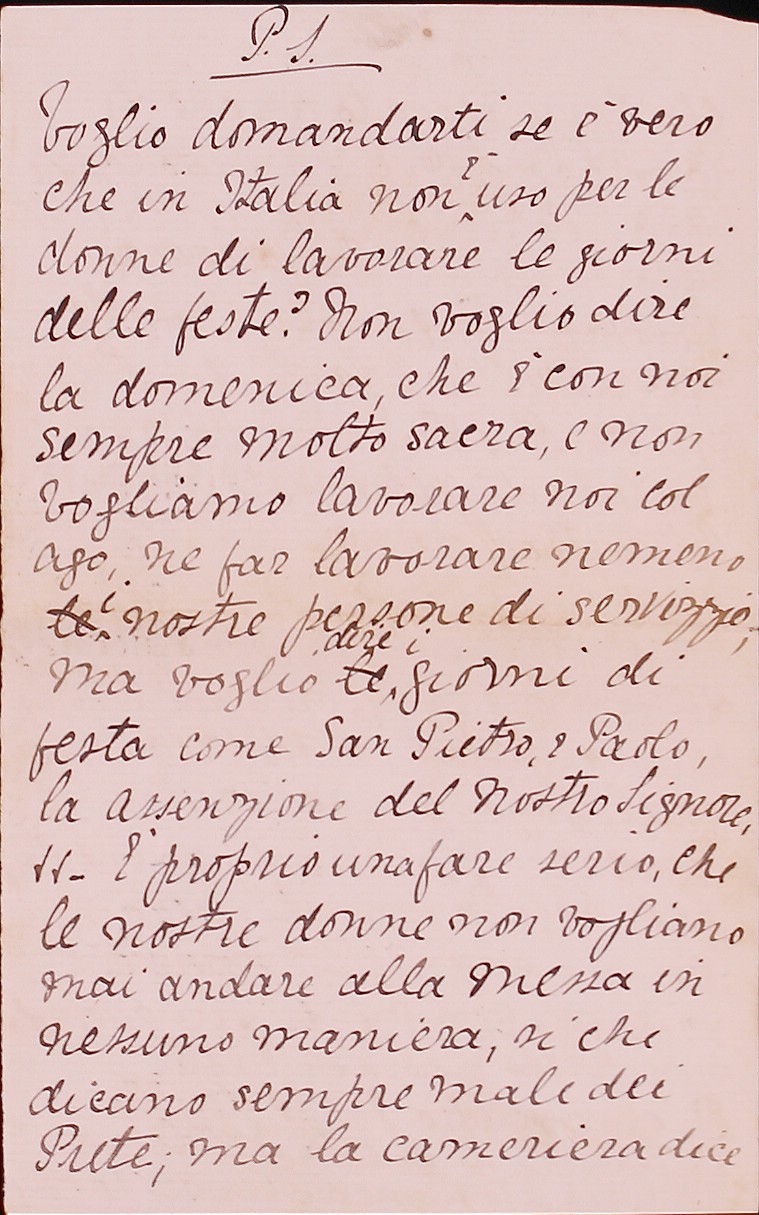 P. S.
Voglio domandarti se è vero
che in Italia non è uso per le
donne di lavorare le giorni
delle feste? Non voglio dire
la domenica, che è con noi
sempre molto sacra, e non
vogliamo lavorare noi col
ago, ne far lavorare nemeno
le i nostre persone di servizzio,
ma voglio le dire i giorni di
festa come San Pietro, e Paolo,
la assenzione del Nostro Signore,
È proprio unafare serio, che
le nostre donne non vogliano
mai andare alla Messa in
nessuno maniera, si che
dicano sempre male dei
Prete; ma la cameriera dice